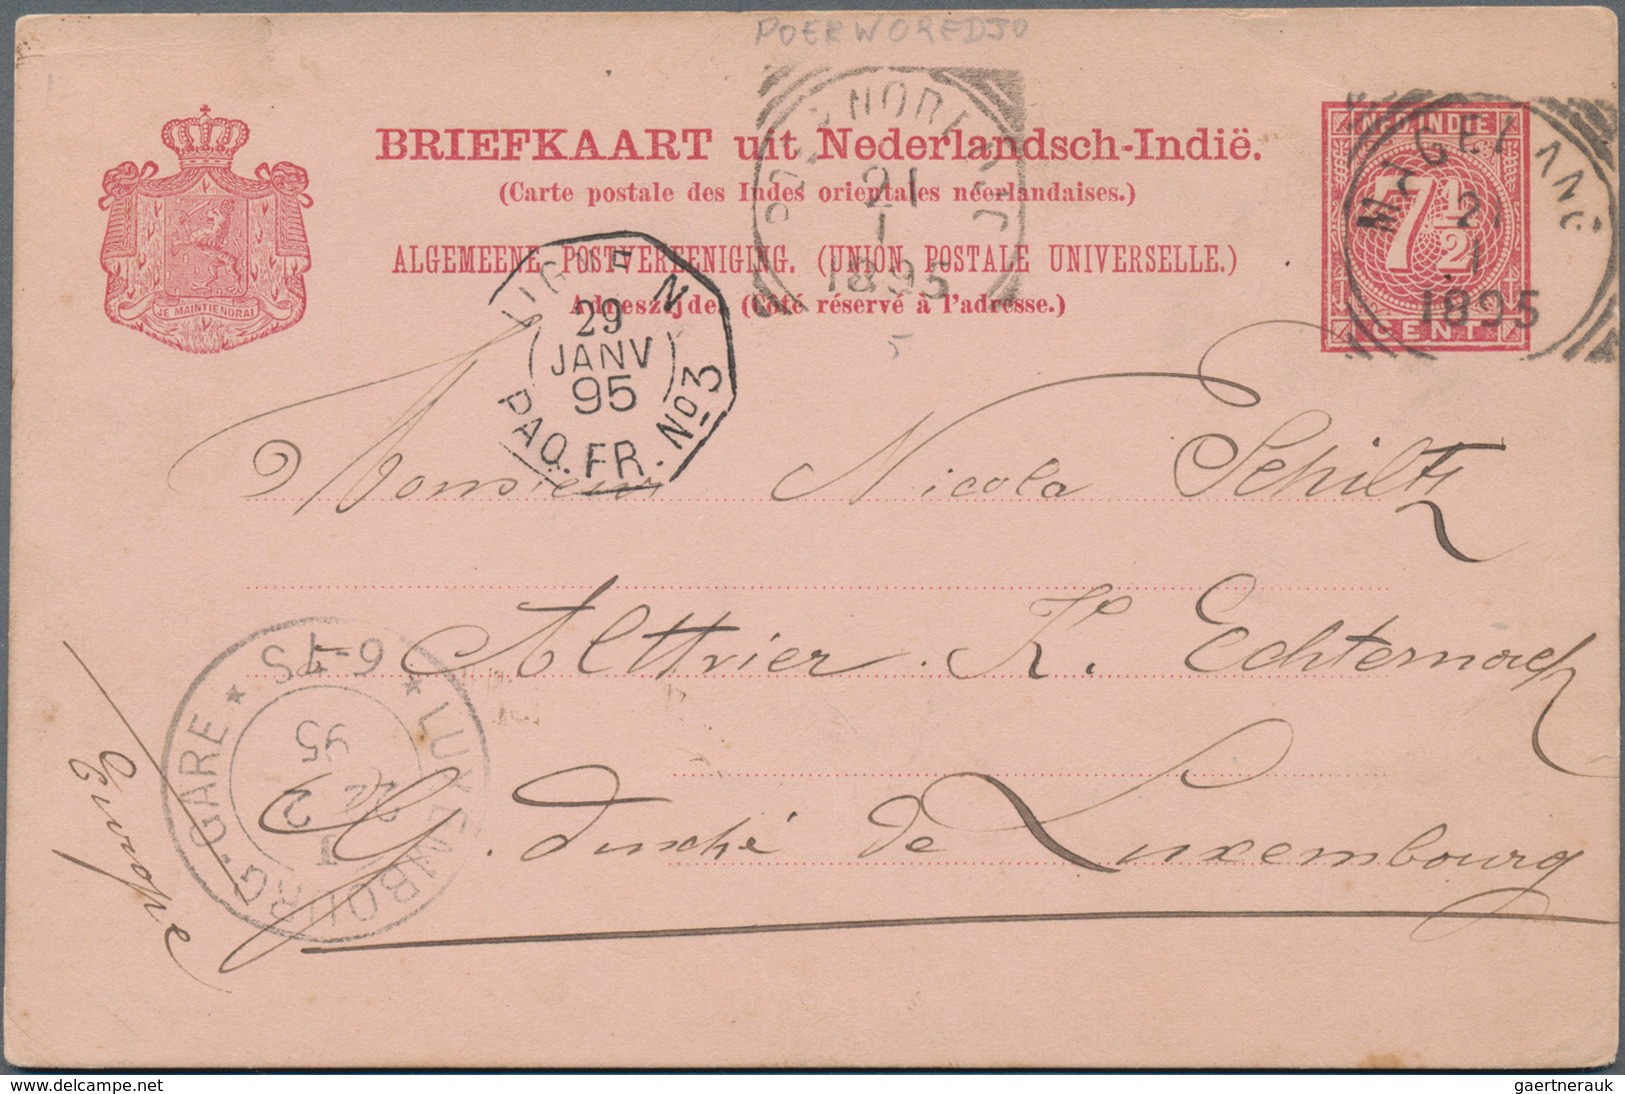 POERWOREDJO
BRIEFKAART uit Nederlandsch-Indië.
(Carte postale des Indes orientales néerlandaises.)
ALGEMEENE POSTVEREENIGING. (UNION POSTALE UNIVERSELLE.)
Adreszijde. (Côté réservé à l'adresse.)
JE MAINTIENDRAI
NED. INDIE
7½
CENT
MAGELANG
21
1
1895
21
1
1895
LIGNE N
29
JANV
95
PAQ. FR. No 3
Monsieur Nicola Schiltz
Alttrier K. Echternach
G. duché de Luxembourg
Europe
LUXEMBOURG-GARE
6-7S
95
22
2
delcampe.net
gaertnerauk